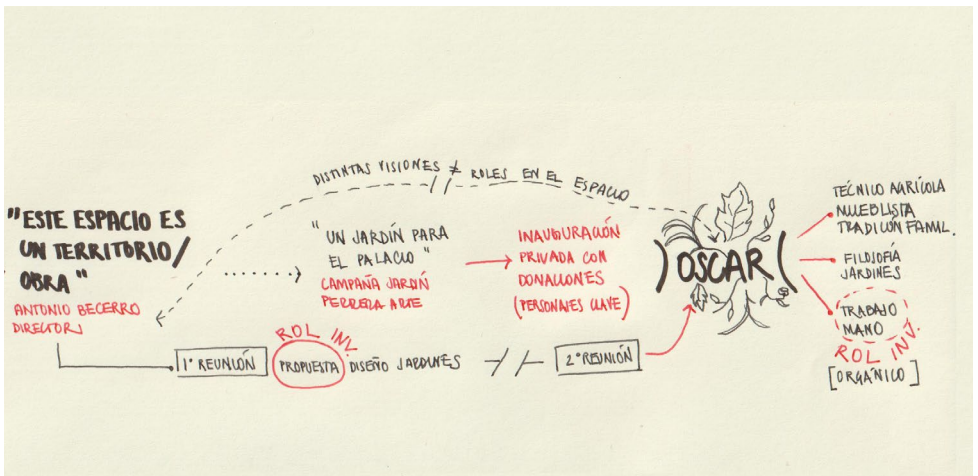 DISTINTAS VISIONES ≠ ROLES EN EL ESPACIO
"ESTE ESPACIO ES
UN TERRITORIO/
OBRA"
ANTONIO BECERRO
DIRECTOR
"UN JARDÍN PARA
EL PALACIO"
CAMPAÑA JARDÍN
PERRERA ARTE
INAUGURACIÓN
PRIVADA CON
DONACIONES
(PERSONAJES CLAVE)
OSCAR
TÉCNICO AGRÍCOLA
MUEBLISTA
TRADICIÓN FAMIL.
FILOSOFÍA
JARDINES
TRABAJO
MANO
ROL INV.
[ORGÁNICO]
ROL INV.
1° REUNIÓN
PROPUESTA DISEÑO JARDINES
2° REUNIÓN